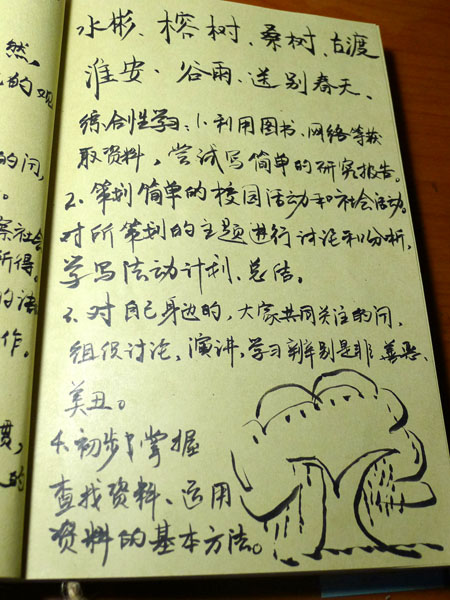 然,
的观
水彬、榕树、桑树、古渡
淮安·谷雨、送别春天、
的问,
综合性学习:1.利用图书、网络等获
取资料,尝试写简单的研究报告。
2.策划简单的校园活动和社会活动。
察社会
对所策划的主题进行讨论和分析,
所得。
学写活动计划、总结。
的语
3.对自己身边的,大家共同关注的问,
作。
组织讨论,演讲,学习辨别是非、善恶、
美丑。
4.初步掌握
查找资料、运用
的
资料的基本方法。